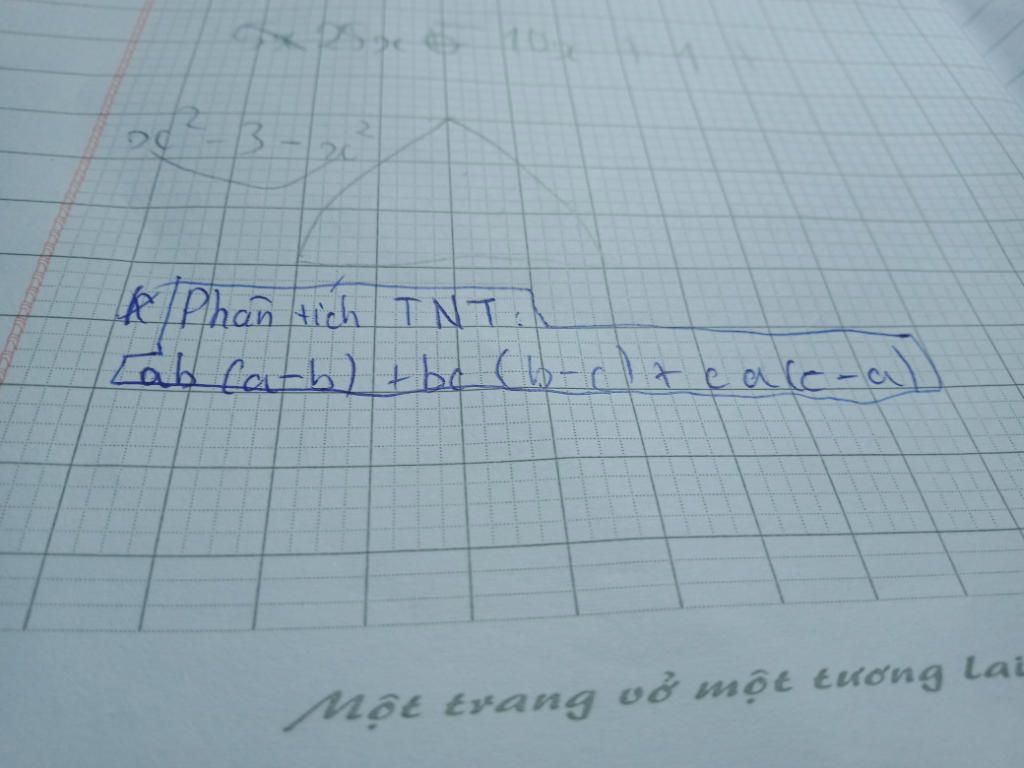 x² - 3 - x²
Phân tích TNT:
ab (a-b) + bc (b-c) + ca(c-a)
Một trang vở một tương lai